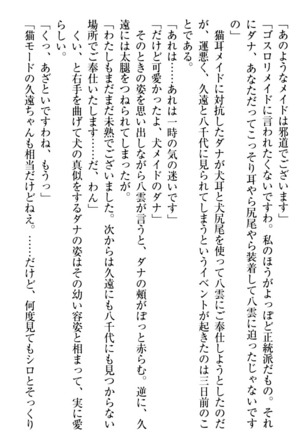 「あのようなメイドは邪道でございます」
「ゴスロリメイドに言われたくないですわ。私のほうがよっぽど正統派だもの。それ
にダナ、あなただってこっそり耳やら尻尾やら装着して八雲に迫ったじゃないです
の」
　猫耳メイドに対抗したダナが犬耳と犬尻尾を使って八雲にご奉仕しようとしたのだ
が、運悪く、久遠と八千代に見られてしまうというイベントが起きたのは三日前のこ
とである。
「あれは……あれは一時の気の迷いです」
「だけど可愛かったよ、犬メイドのダナ」
　そのときの姿を思い出しながら八雲が言うと、ダナの頬がぽっと赤らむ。逆に、久
遠には太腿をつねられてしまったが。
「わたしもまだまだ未熟でございました。次からは久遠にも八千代にも見つからない
場所でご奉仕いたします……だ、わん」
　くい、と右手を曲げて犬の真似をするダナの姿はその幼い容姿と相まって、実に愛
「くっ、あざといですわね、もうっ」
「猫モードの久遠ちゃんも相当だけどねえ。……だけど、何度見てもシロとそっくり